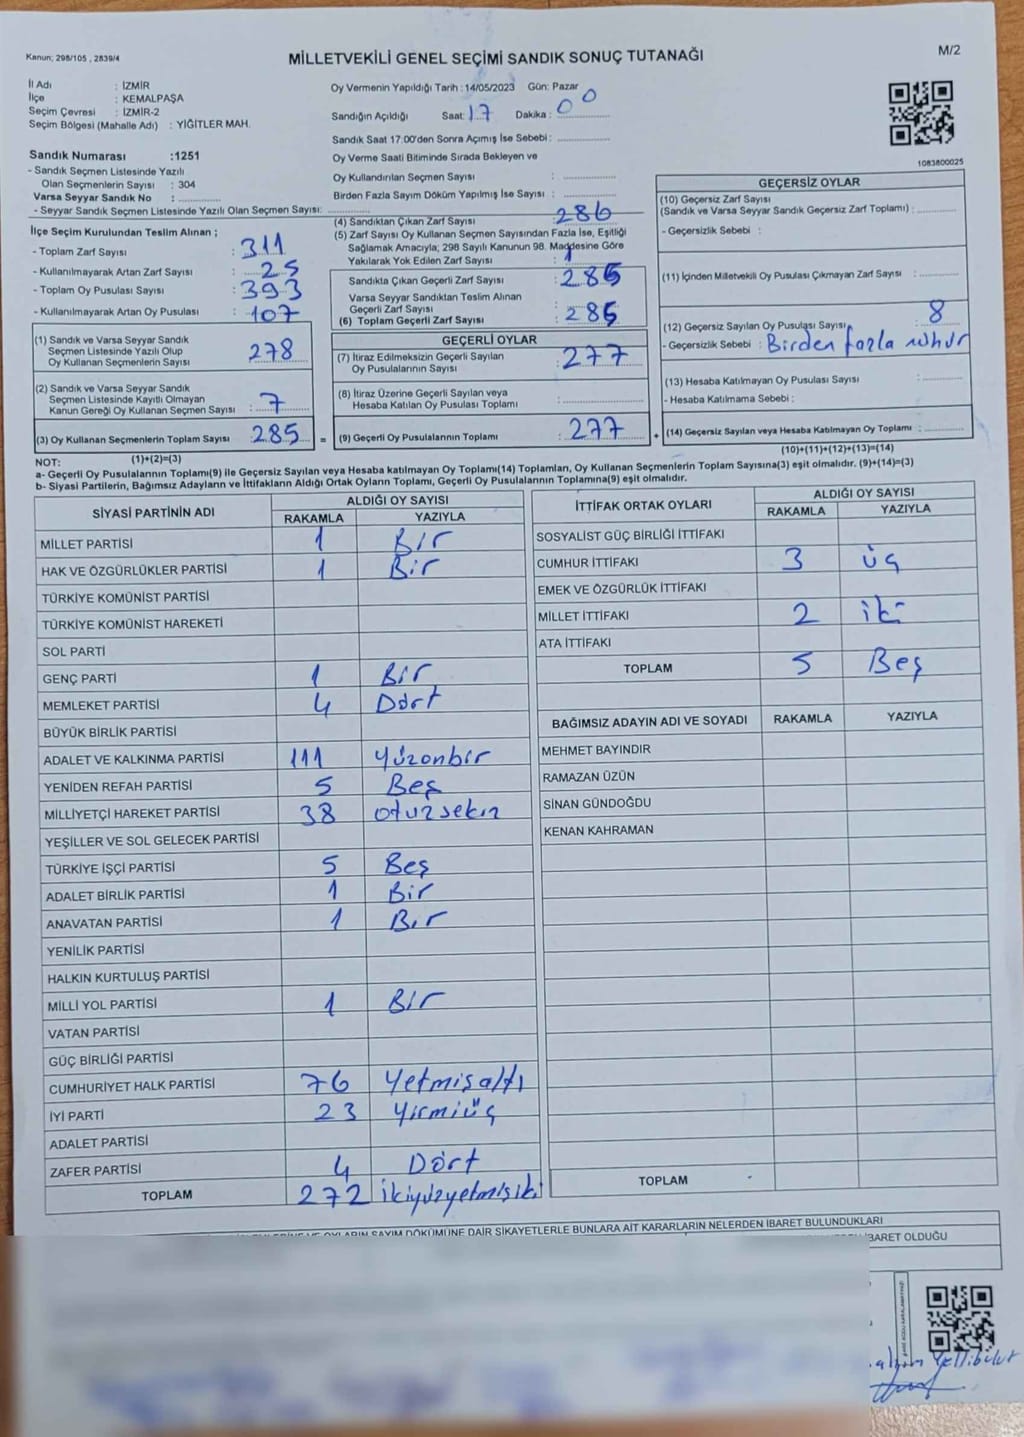 Kanun; 298/105 , 2839/4
MİLLETVEKİLİ GENEL SEÇİMİ SANDIK SONUÇ TUTANAĞI
M/2
İl Adı : İZMİR
İlçe : KEMALPAŞA
Seçim Çevresi : İZMİR-2
Seçim Bölgesi (Mahalle Adı) : YİĞİTLER MAH.
Oy Vermenin Yapıldığı Tarih : 14/05/2023 Gün: Pazar
Sandığın Açıldığı Saat: 17 Dakika : 00
Sandık Saat 17:00'den Sonra Açımış İse Sebebi :
Oy Verme Saati Bitiminde Sırada Bekleyen ve
Oy Kullandırılan Seçmen Sayısı :
Birden Fazla Sayım Döküm Yapılmış İse Sayısı :
1083800025
Sandık Numarası :1251
- Sandık Seçmen Listesinde Yazılı
Olan Seçmenlerin Sayısı : 304
Varsa Seyyar Sandık No :
- Seyyar Sandık Seçmen Listesinde Yazılı Olan Seçmen Sayısı:
İlçe Seçim Kurulundan Teslim Alınan ;
- Toplam Zarf Sayısı : 311
- Kullanılmayarak Artan Zarf Sayısı : 25
- Toplam Oy Pusulası Sayısı : 393
- Kullanılmayarak Artan Oy Pusulası : 107
(1) Sandık ve Varsa Seyyar Sandık
Seçmen Listesinde Yazılı Olup
Oy Kullanan Seçmenlerin Sayısı : 278
(2) Sandık ve Varsa Seyyar Sandık
Seçmen Listesinde Kayıtlı Olmayan
Kanun Gereği Oy Kullanan Seçmen Sayısı : 7
(3) Oy Kullanan Seçmenlerin Toplam Sayısı : 285 =
(1)+(2)=(3)
(4) Sandıktan Çıkan Zarf Sayısı : 286
(5) Zarf Sayısı Oy Kullanan Seçmen Sayısından Fazla İse, Eşitliği
Sağlamak Amacıyla; 298 Sayılı Kanunun 98. Maddesine Göre
Yakılarak Yok Edilen Zarf Sayısı : 1
Sandıkta Çıkan Geçerli Zarf Sayısı : 285
Varsa Seyyar Sandıktan Teslim Alınan
Geçerli Zarf Sayısı
(6) Toplam Geçerli Zarf Sayısı : 285
GEÇERLİ OYLAR
(7) İtiraz Edilmeksizin Geçerli Sayılan
Oy Pusulalarının Sayısı : 277
(8) İtiraz Üzerine Geçerli Sayılan veya
Hesaba Katılan Oy Pusulası Toplamı :
(9) Geçerli Oy Pusulalarının Toplamı : 277 +
GEÇERSİZ OYLAR
(10) Geçersiz Zarf Sayısı
(Sandık ve Varsa Seyyar Sandık Geçersiz Zarf Toplamı) :
- Geçersizlik Sebebi :
(11) İçinden Milletvekili Oy Pusulası Çıkmayan Zarf Sayısı :
(12) Geçersiz Sayılan Oy Pusulası Sayısı : 8
- Geçersizlik Sebebi : Birden fazla mühür
(13) Hesaba Katılmayan Oy Pusulası Sayısı :
- Hesaba Katılmama Sebebi :
(14) Geçersiz Sayılan veya Hesaba Katılmayan Oy Toplamı :
(10)+(11)+(12)+(13)=(14)
NOT:
a- Geçerli Oy Pusulalarının Toplamı(9) ile Geçersiz Sayılan veya Hesaba katılmayan Oy Toplamı(14) Toplamları, Oy Kullanan Seçmenlerin Toplam Sayısına(3) eşit olmalıdır. (9)+(14)=(3)
b- Siyasi Partilerin, Bağımsız Adayların ve İttifakların Aldığı Ortak Oyların Toplamı, Geçerli Oy Pusulalarının Toplamına(9) eşit olmalıdır.
SİYASİ PARTİNİN ADI ALDIĞI OY SAYISI
RAKAMLA YAZIYLA
MİLLET PARTİSİ 1 Bir
HAK VE ÖZGÜRLÜKLER PARTİSİ 1 Bir
TÜRKİYE KOMÜNİST PARTİSİ
TÜRKİYE KOMÜNİST HAREKETİ
SOL PARTİ
GENÇ PARTİ 1 Bir
MEMLEKET PARTİSİ 4 Dört
BÜYÜK BİRLİK PARTİSİ
ADALET VE KALKINMA PARTİSİ 111 Yüzonbir
YENİDEN REFAH PARTİSİ 5 Beş
MİLLİYETÇİ HAREKET PARTİSİ 38 otuzsekiz
YEŞİLLER VE SOL GELECEK PARTİSİ
TÜRKİYE İŞÇİ PARTİSİ 5 Beş
ADALET BİRLİK PARTİSİ 1 Bir
ANAVATAN PARTİSİ 1 Bır
YENİLİK PARTİSİ
HALKIN KURTULUŞ PARTİSİ
MİLLİ YOL PARTİSİ 1 Bir
VATAN PARTİSİ
GÜÇ BİRLİĞİ PARTİSİ
CUMHURİYET HALK PARTİSİ 76 Yetmişaltı
İYİ PARTİ 23 Yirmiüç
ADALET PARTİSİ
ZAFER PARTİSİ 4 Dört
TOPLAM 272 ikiyüzyetmişiki
İTTİFAK ORTAK OYLARI ALDIĞI OY SAYISI
RAKAMLA YAZIYLA
SOSYALİST GÜÇ BİRLİĞİ İTTİFAKI
CUMHUR İTTİFAKI 3 üç
EMEK VE ÖZGÜRLÜK İTTİFAKI
MİLLET İTTİFAKI 2 iki
ATA İTTİFAKI
TOPLAM 5 Beş
BAĞIMSIZ ADAYIN ADI VE SOYADI RAKAMLA YAZIYLA
MEHMET BAYINDIR
RAMAZAN ÜZÜN
SİNAN GÜNDOĞDU
KENAN KAHRAMAN
TOPLAM
SAYIM DÖKÜMÜNE DAİR ŞİKAYETLERLE BUNLARA AİT KARARLARIN NELERDEN İBARET BULUNDUKLARI
İBARET OLDUĞU